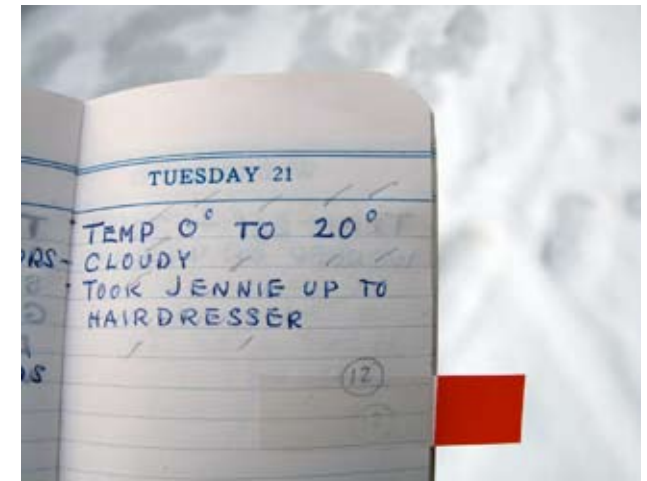 TUESDAY 21
TEMP 0° TO 20°
CLOUDY
TOOK JENNIE UP TO
HAIRDRESSER
12